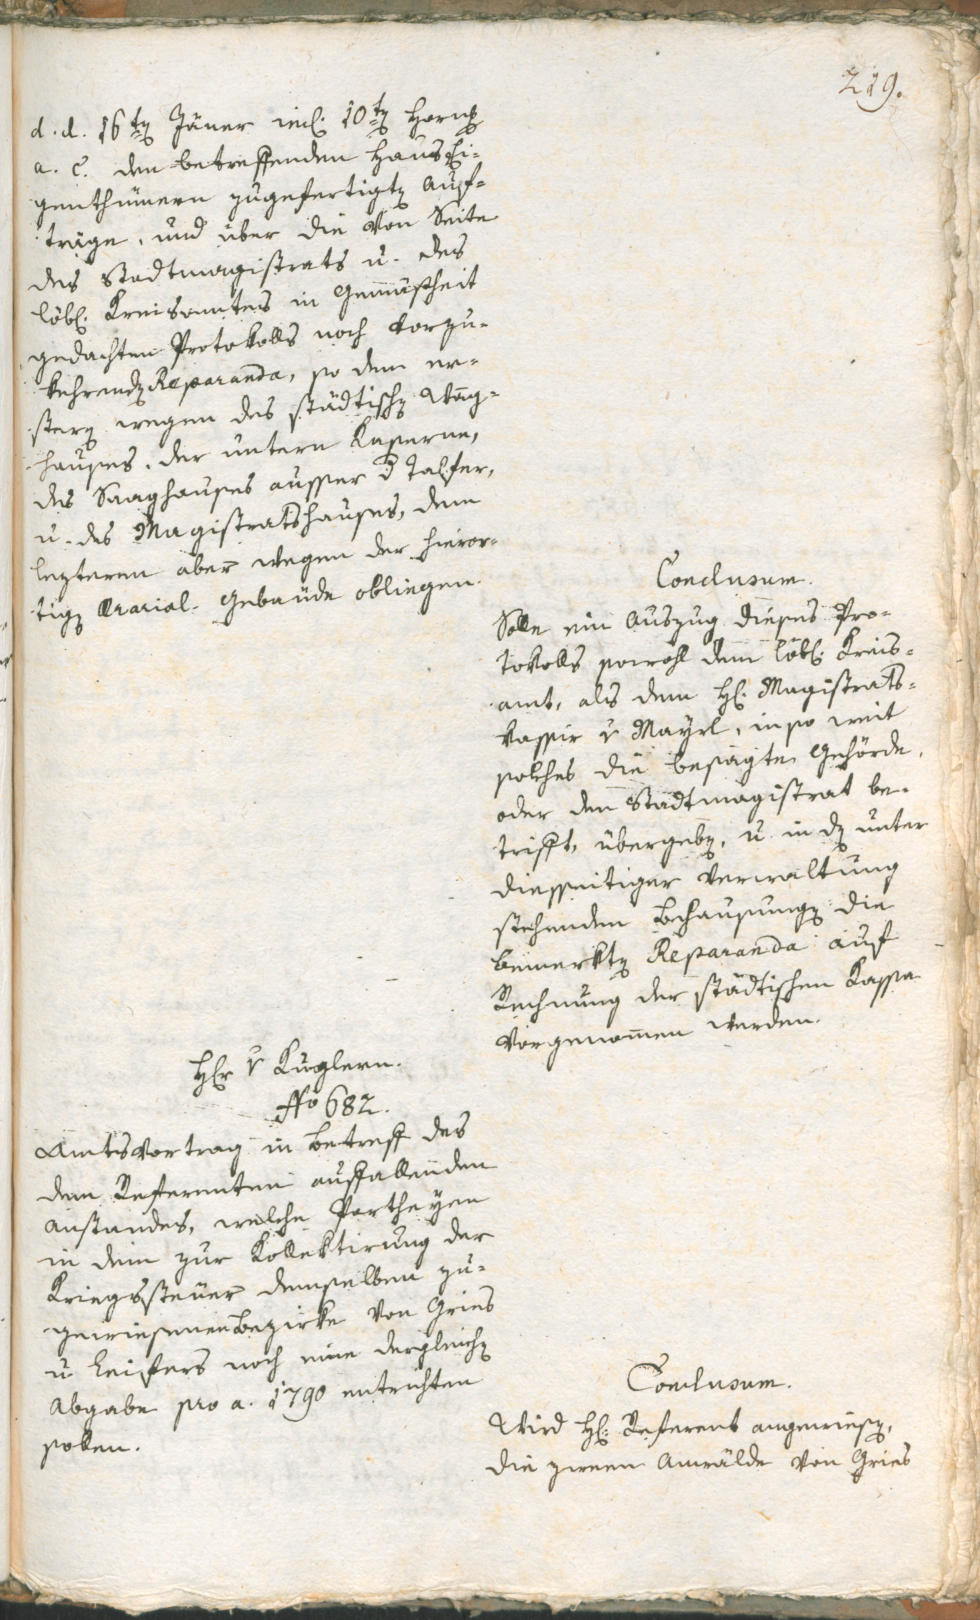 219.
d. d. 16ten Jäner incl. 10ten Hornung
a. c. den betreffenden Hausei-
genthümern zugefertigten Auf-
träge, und über die von Seite
des Stadtmagistrats u. des
löbl. Kreisamtes in Gemäßheit
gedachten Protokolls noch vorzu-
kehrenden Reparanda, so dem er-
stern wegen des städtischen Wag-
hauses, der untern Kaserne,
des Saaghauses ausser d Talfer,
u. des Magistratshauses, dem
leztern aber wegen der hieror-
tigen Ararial-Gebäude obliegen.
Conclusum.
Solle ein Auszug dieses Pro-
tokolls sowohl dem löbl. Kreis-
amt, als dem H. Magistrats-
kassir v Mayrl, in so weit
solches die besagte Gehörde,
oder den Stadtmagistrat be-
trifft, übergeben, u. in den unter
diesseitiger Verwaltung
stehenden Behausungen die
bemerkten Reparanda auf
Rechnung der städtischen Kassa
vorgenommen werden.
Hr v Kuglern.
No 682.
Amtsvortrag in Betreff des
dem Referenten auffallenden
Anstandes, welche Partheyen
in dem zur Kollektirung der
Kriegssteuer demselben zu-
gewiesenen Bezirke von Gries
u Leifers noch eine dergleichen
Abgabe pro a. 1790 entrichten
sollen.
Conclusum.
Wird H. Referent angewiesen,
die zween Anwälde von Gries